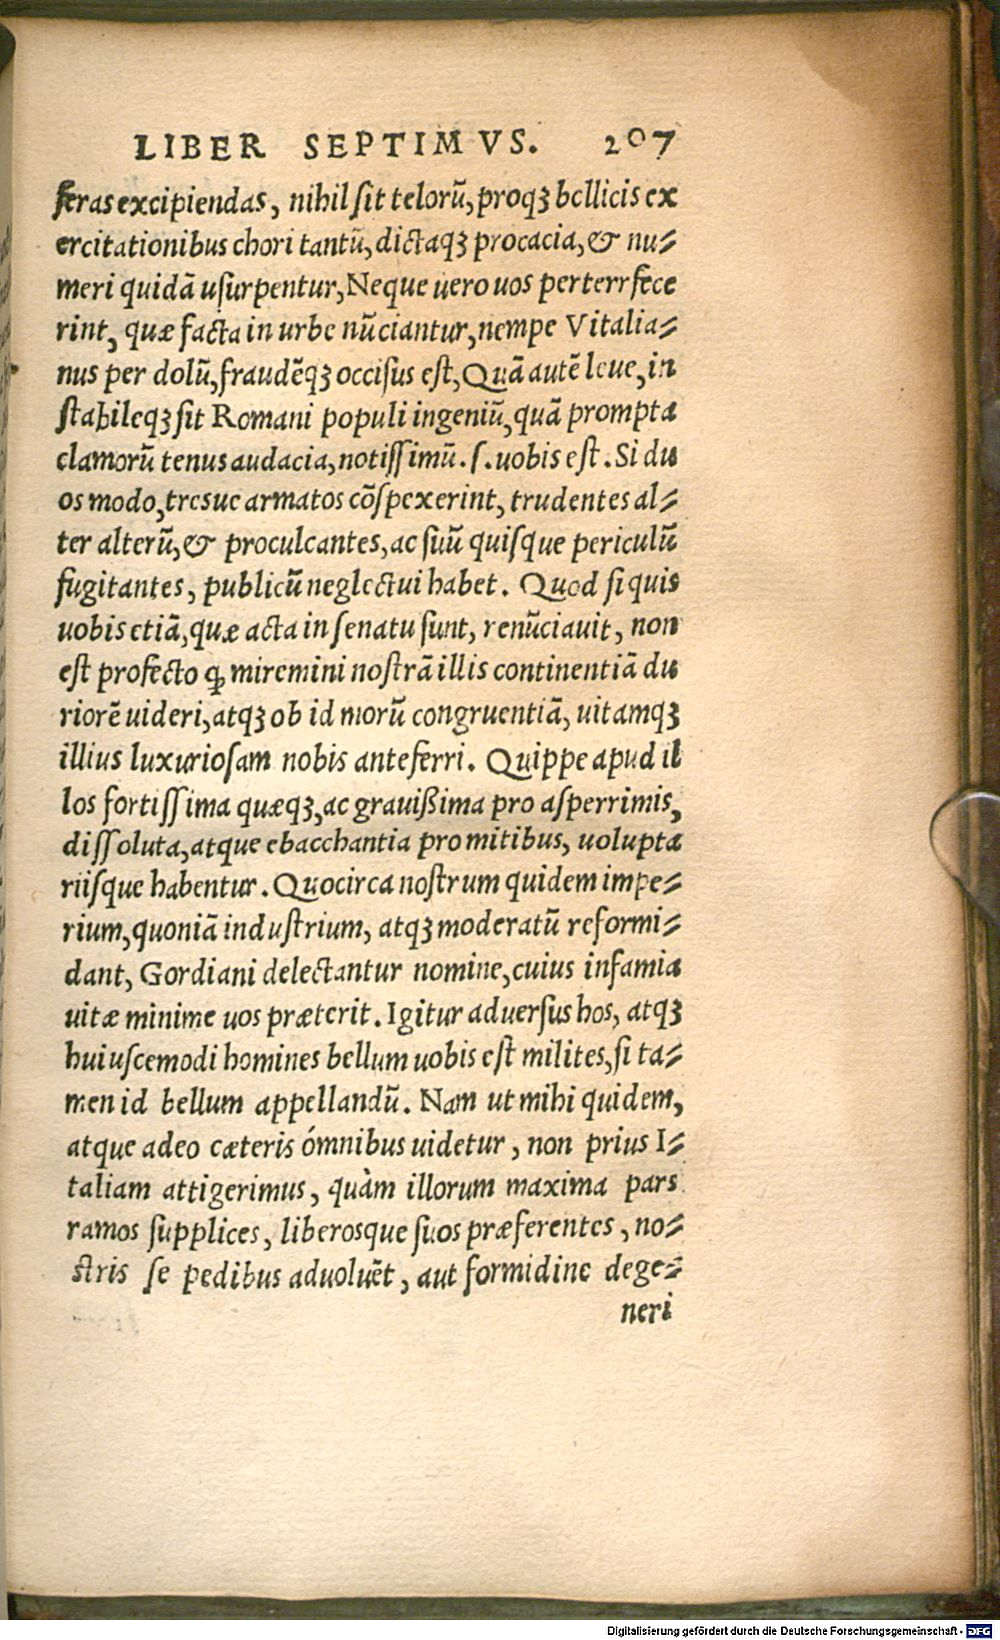 LIBER SEPTIMVS. 207
feras excipiendas, nihil ſit telorũ, proqꝫ bellicis ex
ercitationibus chori tantũ, dictaqꝫ procacia, & nu⸗
meri quidã uſurpentur, Neque uero uos perterrfece
rint, quæ facta in urbe nũciantur, nempe Vitalia⸗
nus per dolũ, fraudẽqꝫ occiſus eſt, Quã autẽ leue, in
ſtabileqꝫ ſit Romani populi ingeniũ, quã prompta
clamorũ tenus audacia, notiſſimũ. ſ. uobis eſt. Si du
os modo, tresue armatos cõſpexerint, trudentes al⸗
ter alterũ, & proculcantes, ac ſuũ quiſque periculũ
fugitantes, publicũ neglectui habet. Quod ſi quis
uobis etiã, quæ acta in ſenatu ſunt, renũciauit, non
eſt profecto ꝙ miremini noſtrã illis continentiã du
riorẽ uideri, atqꝫ ob id morũ congruentiã, uitamqꝫ
illius luxurioſam nobis anteferri. Quippe apud il
los fortiſſima quæqꝫ, ac grauißima pro aſperrimis,
diſſoluta, atque ebacchantia pro mitibus, uolupta
riiſque habentur. Quocirca noſtrum quidem impe⸗
rium, quoniã induſtrium, atqꝫ moderatũ reformi⸗
dant, Gordiani delectantur nomine, cuius infamia
uitæ minime uos præterit. Igitur aduerſus hos, atqꝫ
huiuſcemodi homines bellum uobis eſt milites, ſi ta⸗
men id bellum appellandũ. Nam ut mihi quidem,
atque adeo cæteris ómnibus uidetur, non prius I⸗
taliam attigerimus, quàm illorum maxima pars
ramos ſupplices, liberosque ſuos præferentes, no⸗
ſtris ſe pedibus aduoluẽt, aut formidine dege⸗
neri
Digitalisierung gefördert durch die Deutsche Forschungsgemeinschaft - DFG